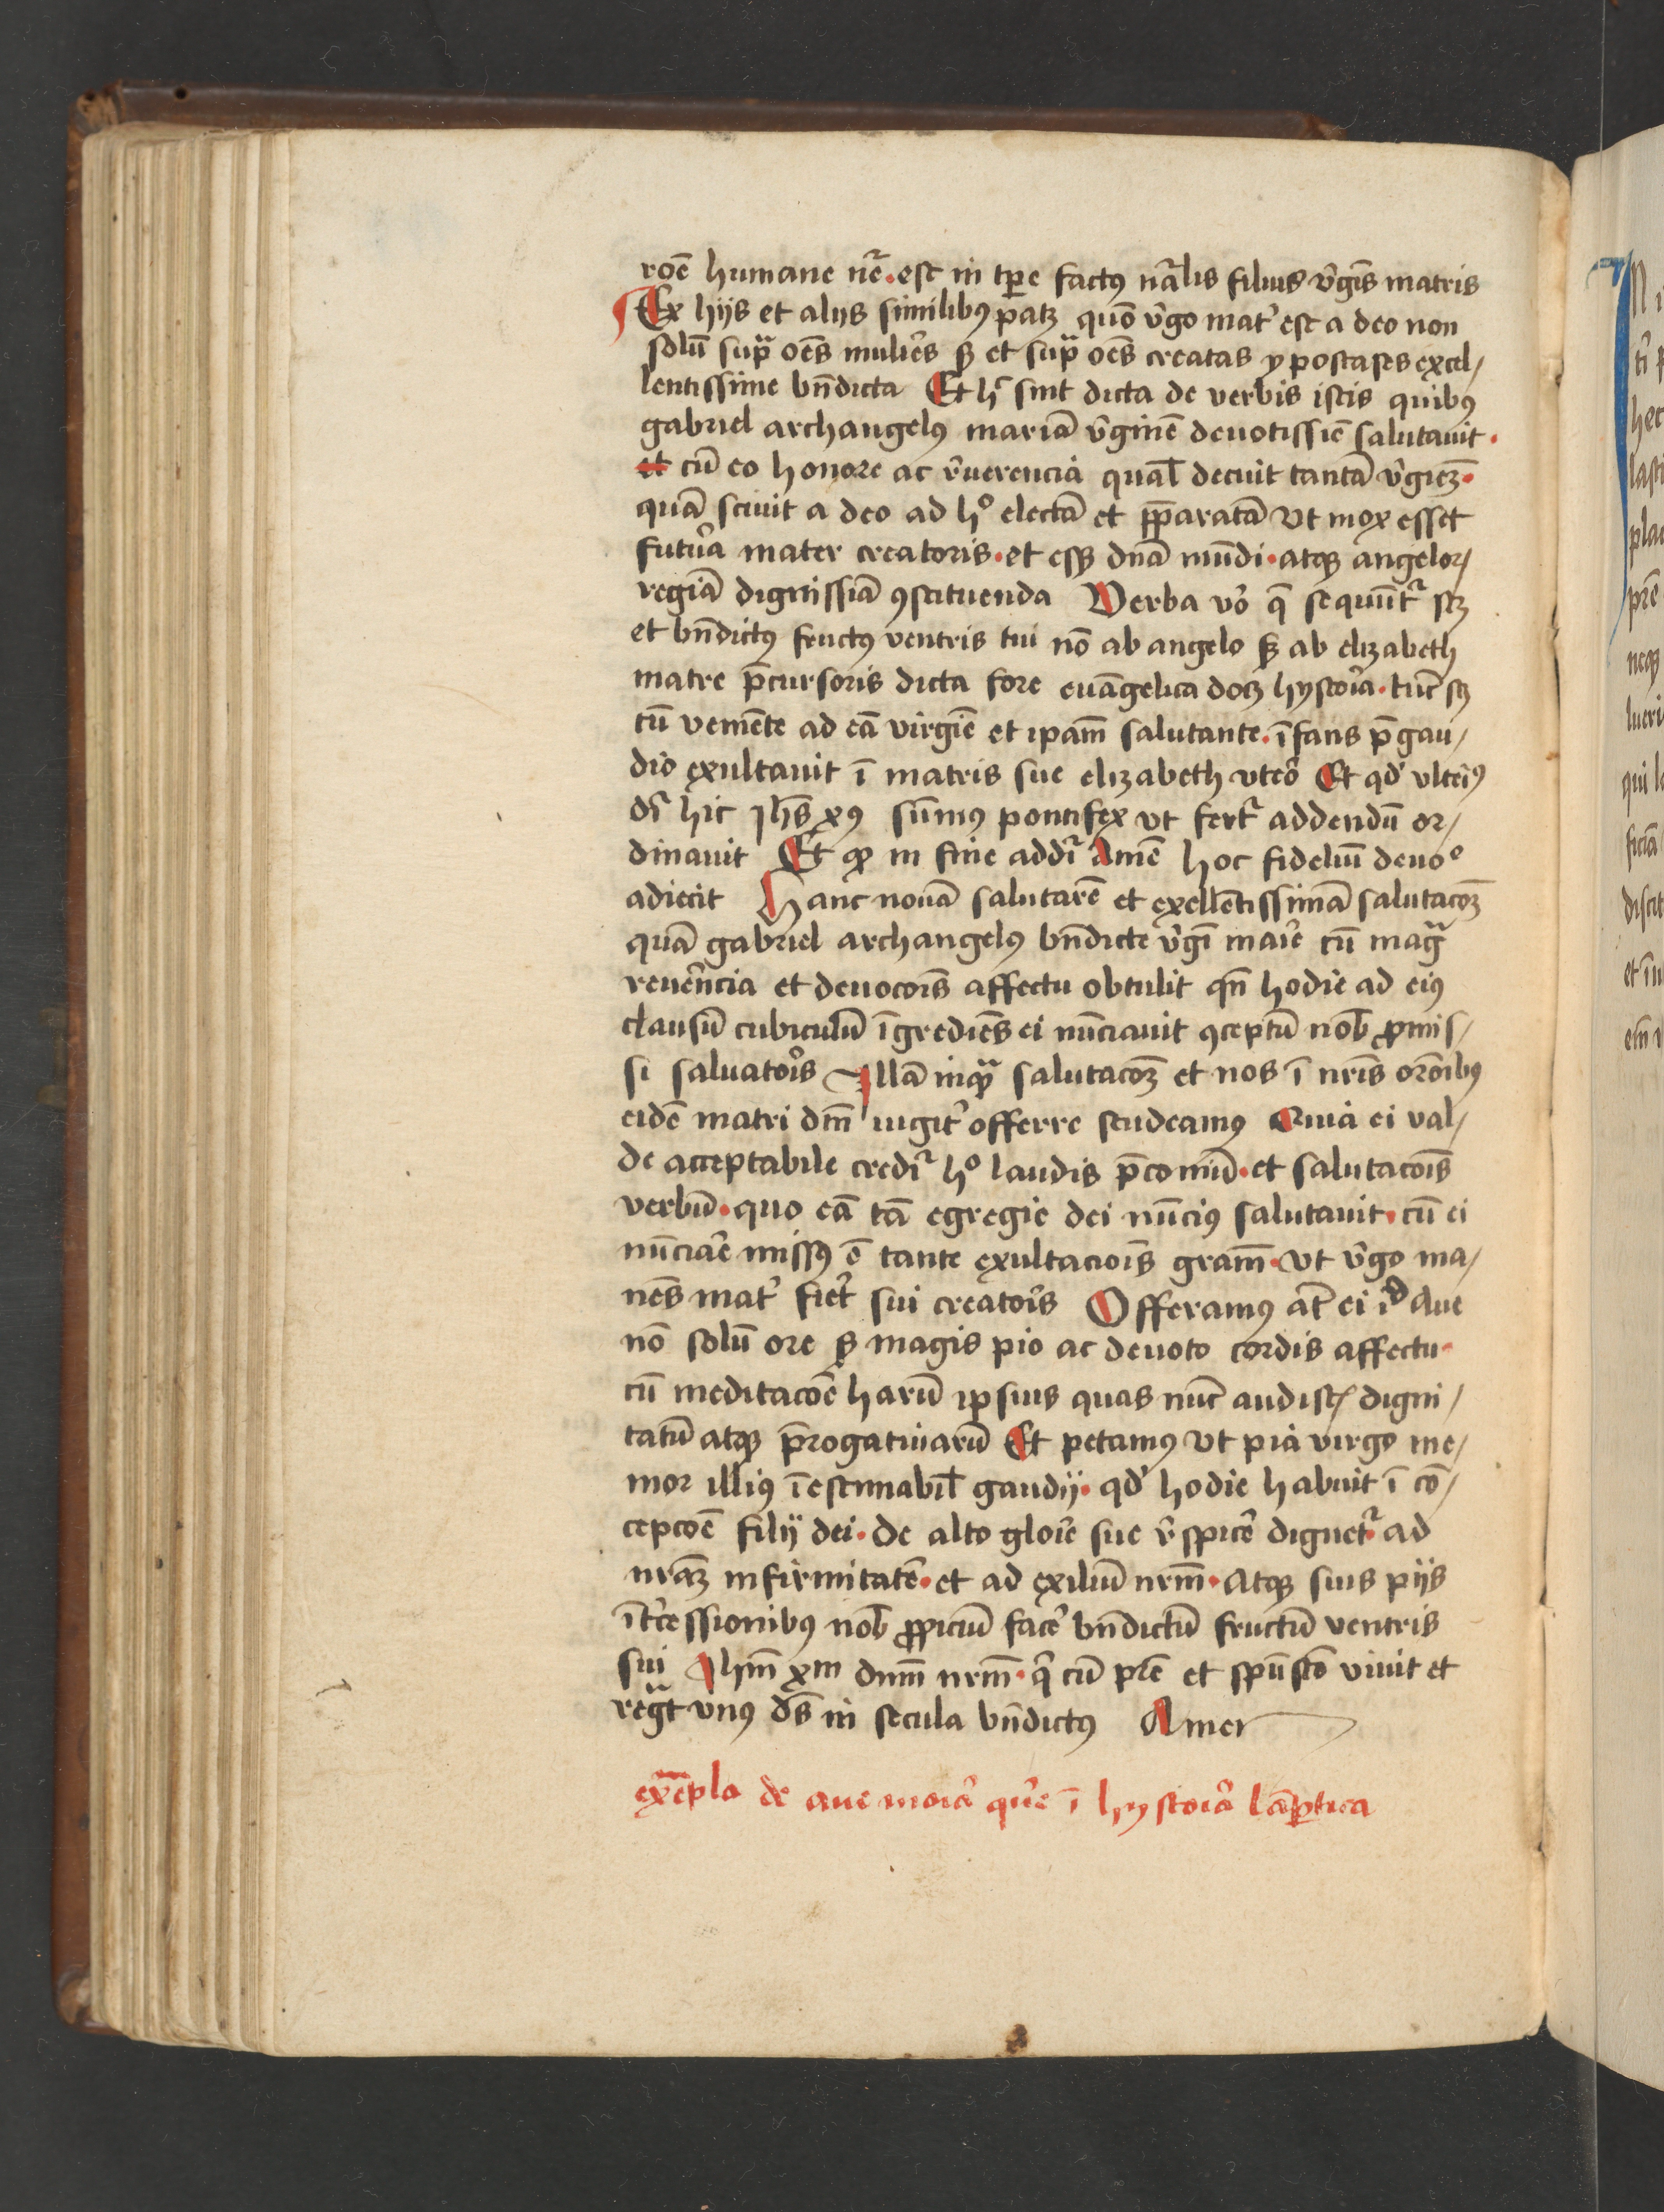 roē humane nr̄e · est in tp̄e factꝰ nāłis filius v̄gīs matris
Ex hijs et alijs similibꝰ patꝫ quō v̄go mat᷑ est a deo non
solū sup̄ oēs mulieres sꝫ et sup̄ oēs creatas ypostases excel⸗
lentissime bn̄dicta Et h̄ sint dicta de verbis istis quibꝰ
gabriel archangelꝰ mariā v̄ginē deuotissīe salutauit ·
et cū eo honore ac r̄uerencia quał decuit tantā v̄gīeꝫ ·
quā sciuit a deo ad hͦ electā et p̄paratā vt mox esset
futura mater creatoris · et eiꝰqꝫ dn̄a mūdi · atqꝫ angeloꝝ
regīa dignissīa ꝯstituenda Verba vͦ q̄ sequūt᷑ scꝫ
et bn̄dictꝰ fructꝰ ventris tui nō ab angelo sꝫ ab elizabeth
matre p̄cursoris dicta fore euāgelica docꝫ hystoria · tūc scꝫ
cū veniēte ad eā virgīe et ip̄am salutante · īfans p̄ gau⸗
dio exultauit ī matris sue elizabeth vtero Et qd᷑ vlteriꝰ
dr̄ hic Jhs̄ xp̄ꝰ sūmꝰ pontifex vt fert᷑ addendū or⸗
dinauit Et ꝙ in fine addr̄ Amē hoc fideliū deuoͦ
adiecit Hanc nouā salutarē et exellētissimā salutacōeꝫ
quā gabriel archangelꝰ bn̄dicte v̄gī marie cū magͣ
reuerencia et deuocōis affectu obtulit qn̄ hodie ad eiꝰ
clausū cubiculū īgrediēs ei nūciauit ꝯceptū nob̄ ꝓmis⸗
si saluatoris Illā inqͣ salutacōeꝫ et nos ī nr̄is orōnibꝰ
eidē matri dn̄i iugit᷑ offerre studeamꝰ Quia ei val⸗
de acceptabile credit᷑ hͦ laudis p̄coniū · et salutacōis
verbū · quo eā tā egregie dei nūciꝰ salutauit · cū ei
nūciare missꝰ ē tante exultaciōis gr̄am · vt v̄go ma⸗
nēs mat᷑ fieret sui creatoris Offeramꝰ at̄ ei id Aue
nō solū ore sꝫ magis pio ac deuoto cordis affectu ·
cū meditacōe harū ipsius quas nūc audistꝭ digni⸗
tatū atqꝫ p̄rogatiuarū Et petamꝰ vt pia virgo me⸗
mor illiꝰ īestimabił gaudij · qd᷑ hodie habuit ī cō⸗
cepcōe filij dei · de alto glorie sue r̄spicere dignet᷑ ad
nr̄aꝫ infirmitatē · et ad exiliū nr̄m · Atqꝫ suis pijs
īt᷑cessionibꝰ nob̄ ꝓpiciū facere bn̄dictū fructū ventris
sui Jhm̄ xp̄m dn̄m nr̄m · qͥ cū pr̄e et spū sctō viuit et
regͣt vnꝰ ds̄ in secula bn̄dictꝰ Amen
exēpla de aue maria quere ī hystoria lāpartica